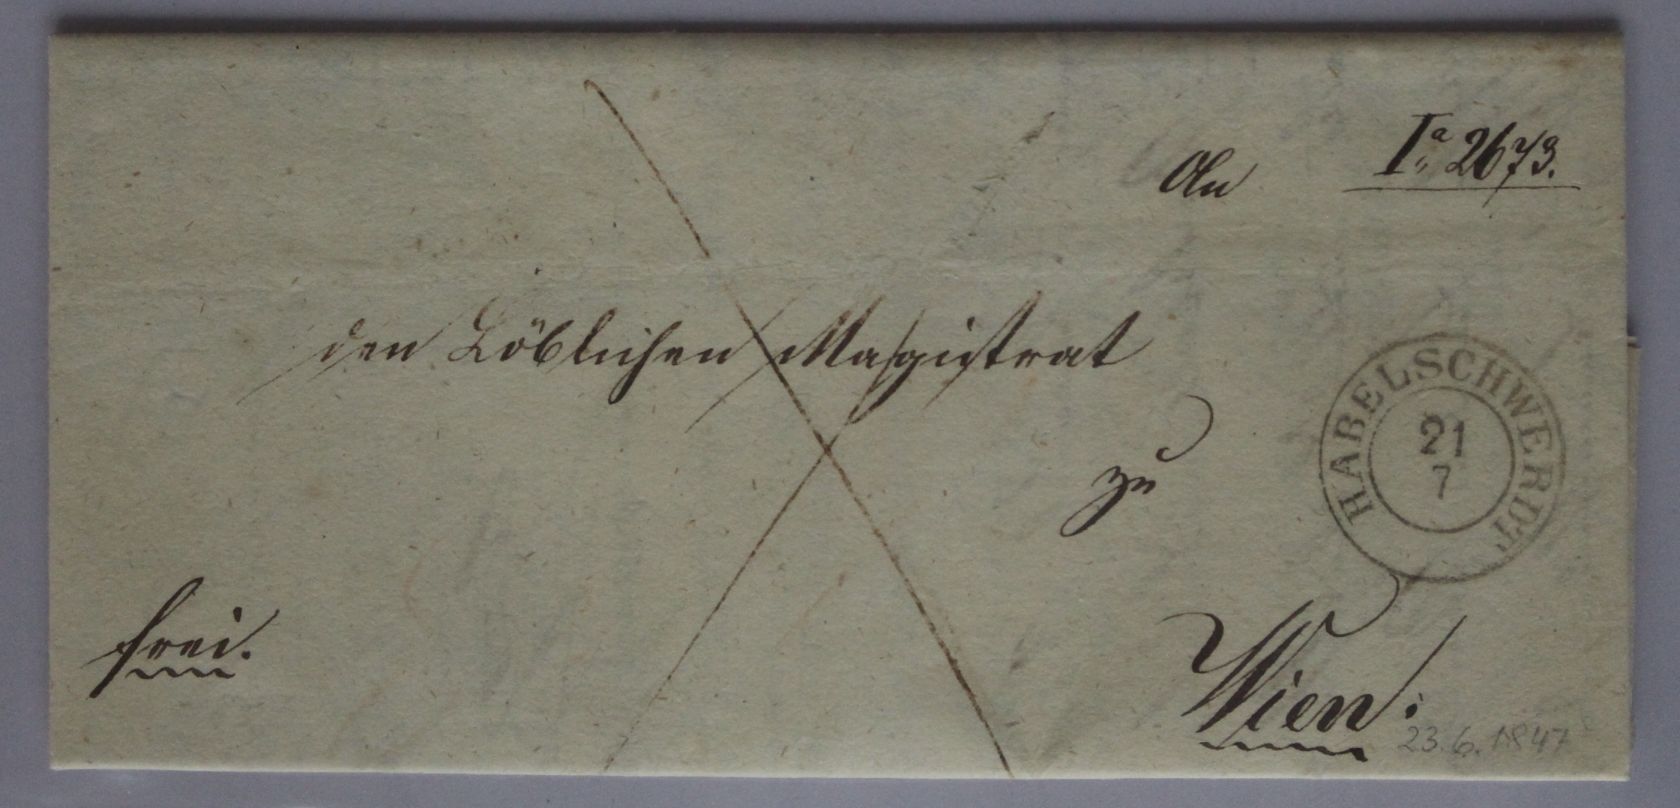 Ia 2673.
An
den Löblichen Magistrat
zu
Wien.
frei.
HABELSCHWERDT
21
7
23.6.1847